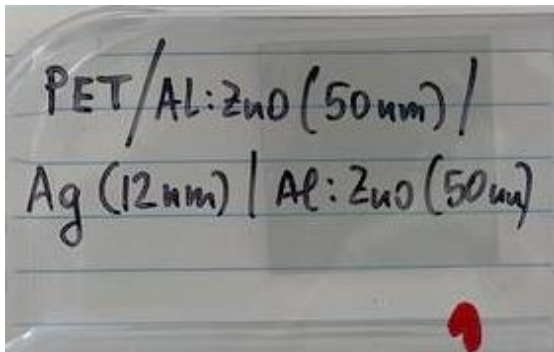 PET/Al:ZnO(50nm)/
Ag(12nm)/Al:ZnO(50nm)